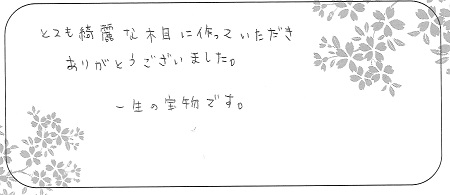 とても綺麗な木目に作っていただき
ありがとうございました。
一生の宝物です。